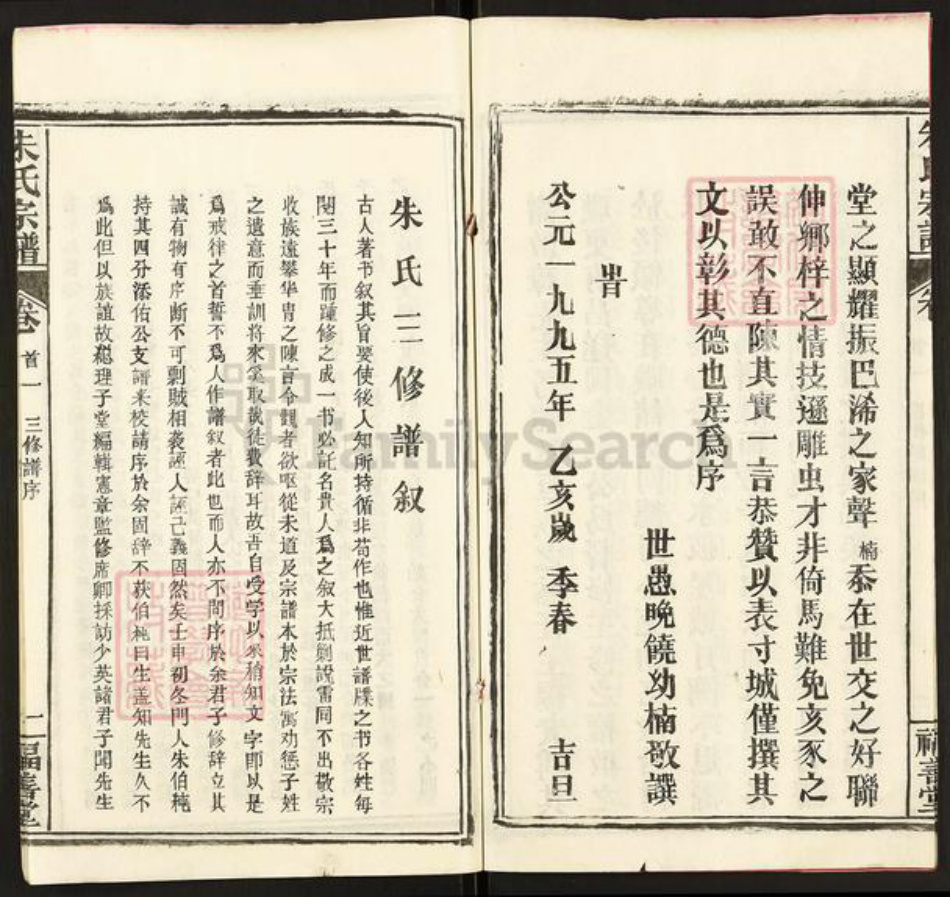 堂之顯耀振巴浠之家聲楠忝在世交之好聯
伸鄉梓之情技遜雕虫才非倚馬難免亥豕之
誤敢不直陳其實一言恭贊以表寸城僅撰其
文以彰其德也是爲序
世愚晚饒幼楠敬譔
旹
公元一九九五年 乙亥歲 季春 吉旦
朱氏宗譜
卷首一 三修譜序
二 福善堂
朱氏三修譜叙
古人著书叙其旨要使後人知所持循非苟作也惟近世譜牒之书各姓每
閱三十年而踵修之成一书必託名貴人爲之叙大抵剿說雷同不出敬宗
收族遠攀华胄之陳言令觀者欲呕從未道及宗譜本於宗法寓劝惩子姓
之遺意而垂訓將來奚取哉徒費辞耳故吾自受学以來稍知文字即以是
爲戒律之首誓不爲人作譜叙者此也而人亦不問序於余君子修辞立其
誠有物有序断不可剽賊相袭誣人誣己義固然矣壬申初冬門人朱伯純
持其四分添佑公支譜来校請序於余固辞不获伯純曰生盖知先生久不
爲此但以族誼故總理子堂編輯憲章監修席卿採訪少英諸君子聞先生
FamilySearch